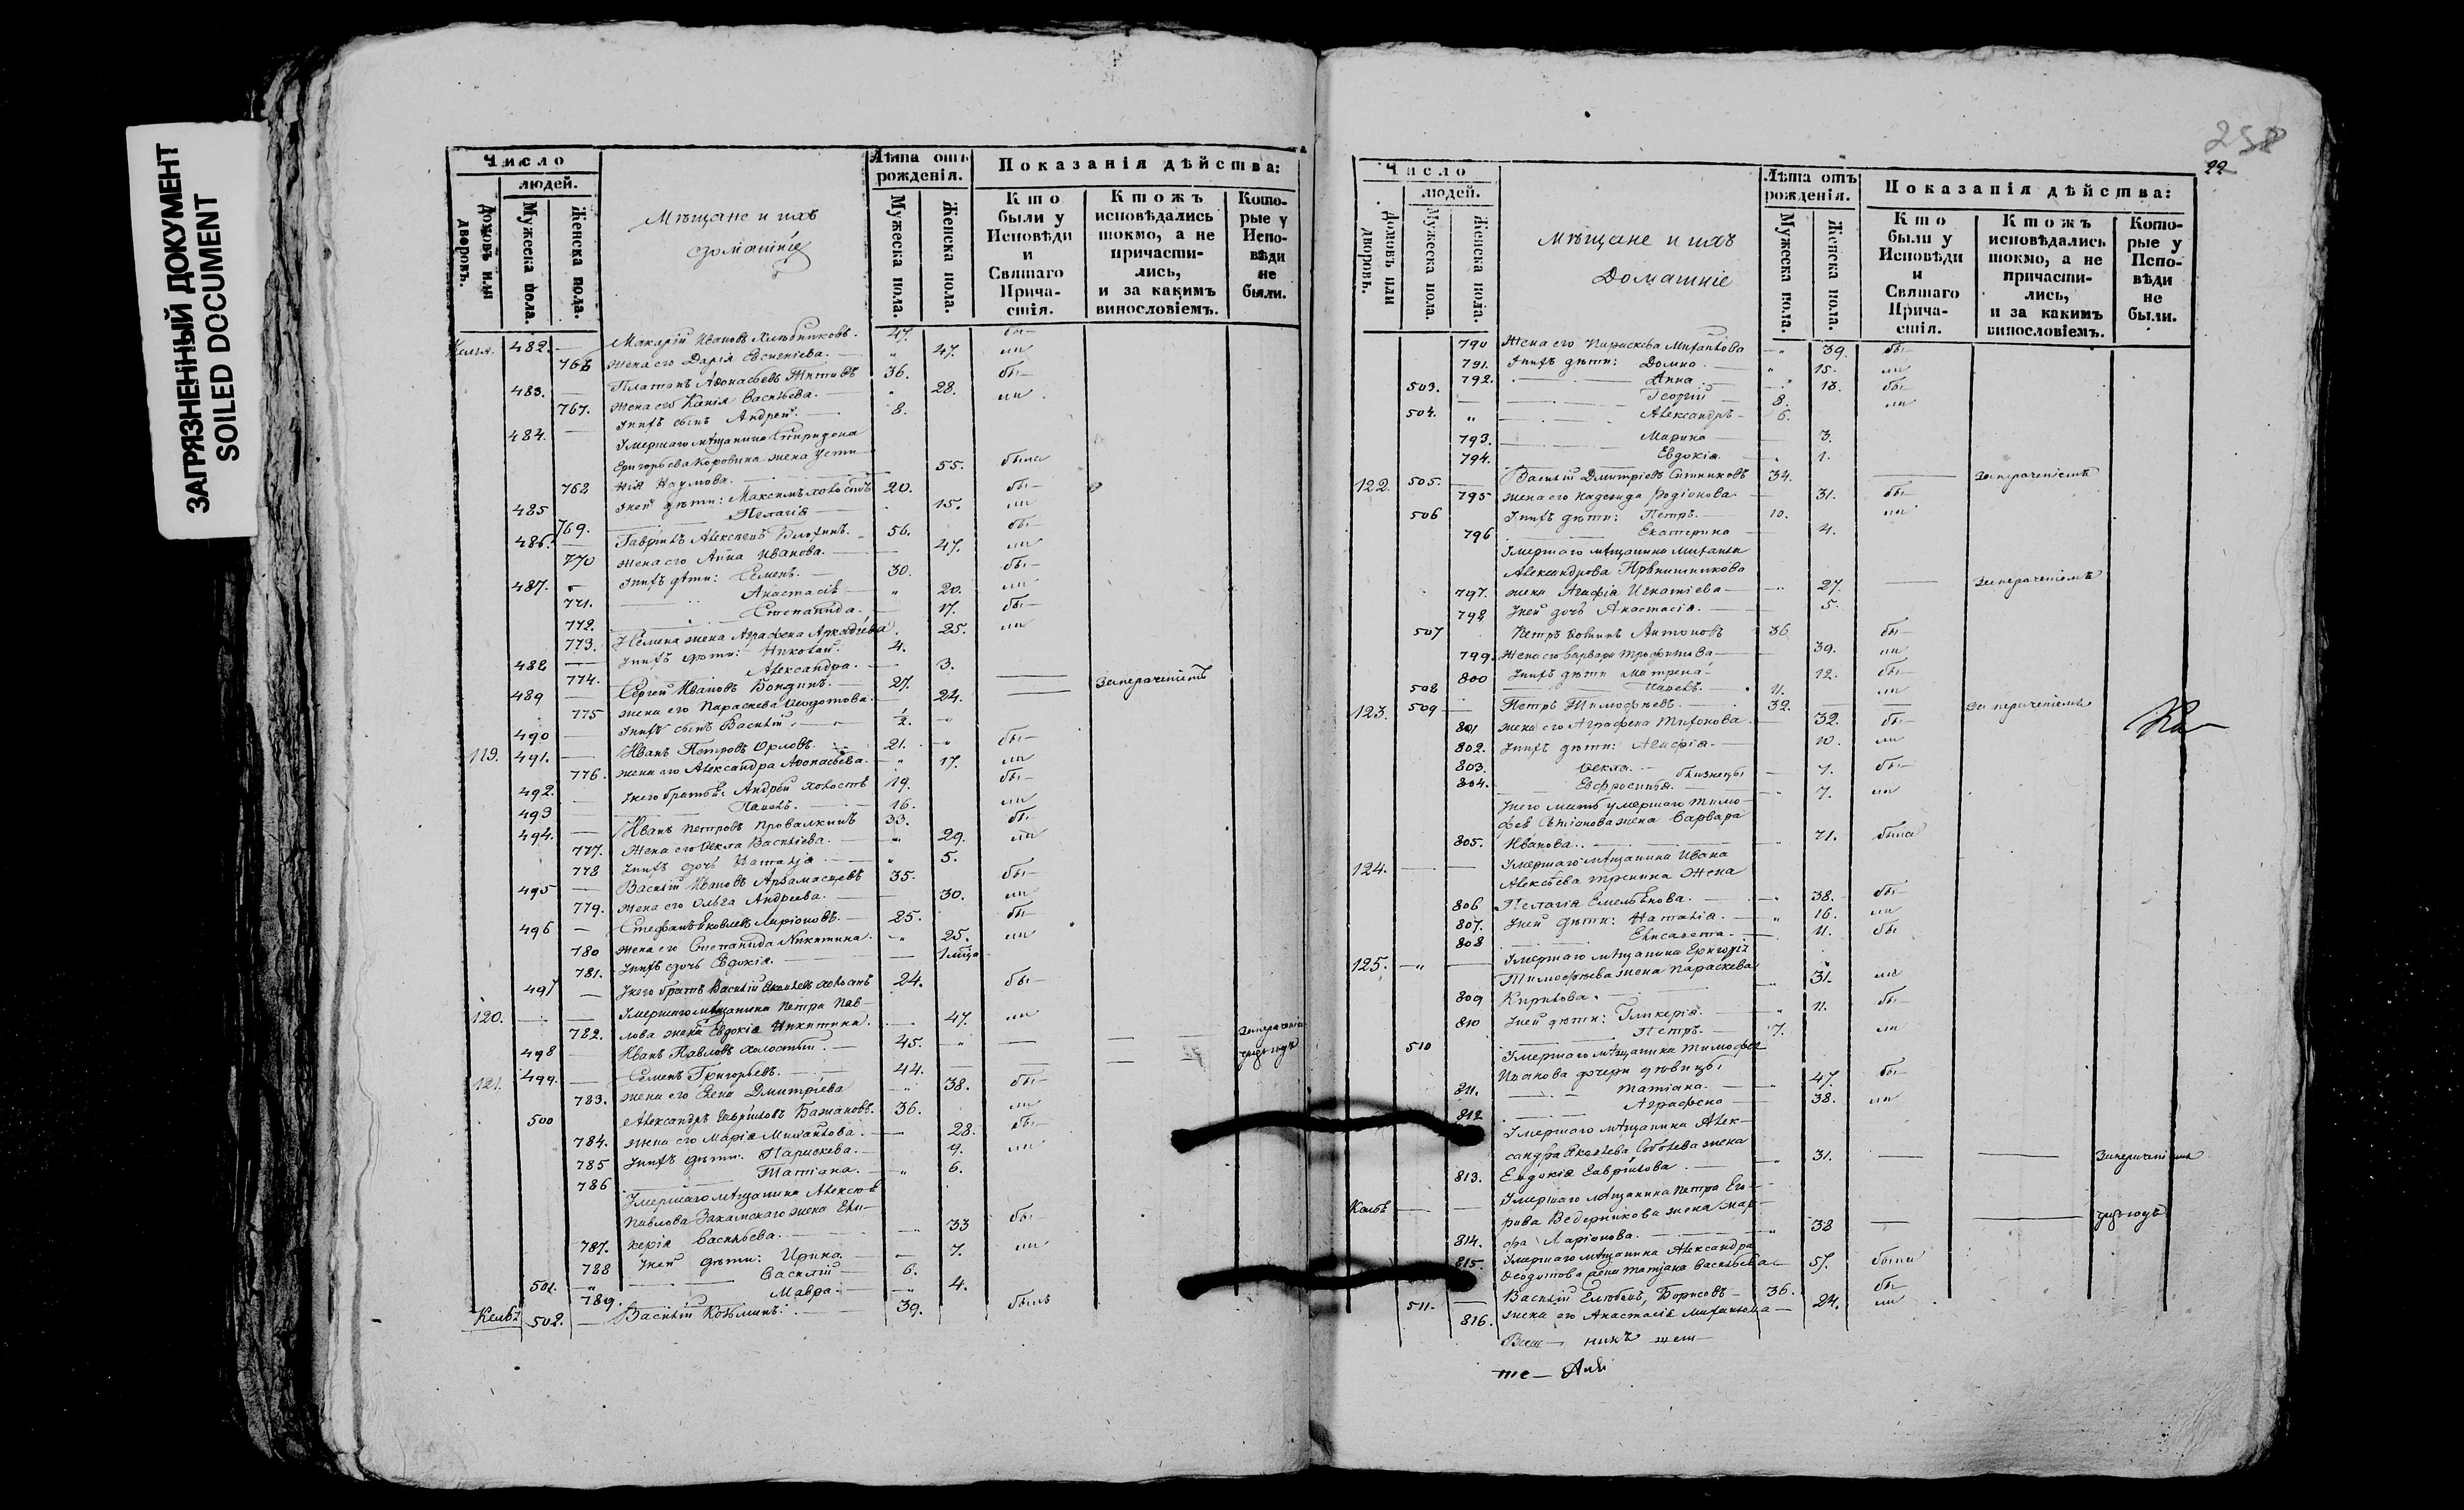 ЗАГРЯЗНЕННЫЙ ДОКУМЕНТ
SOILED DOCUMENT
Число
людей.
Домовъ или дворовъ.
Мужеска пола.
Женска пола.
Мѣщане и ихъ
домашніе
Лѣта отъ рожденія.
Мужеска пола.
Женска пола.
Показанія дѣйства:
Кто были у Исповѣди и Святаго Причастія.
Ктожъ исповѣдались токмо, а не причастились, и за какимъ винословіемъ.
Которые у Исповѣди не были.
482. — Макарій Ивановъ Хлѣбниковъ. 47. бы—
766 жена его Дарія Евсигніева. — " 47. ли
483. — Платонъ Аѳонасьевъ Титовъ 36. бы—
767. жена его Васильева. — " 28. ли
484. — У нихъ сынъ Андрей. — 8.
Умершаго мѣщанина Спиридона
Григорьева Коровина жена Усти—
768 нія Наумова. — 55. была
485 У ней дѣти: Максимъ холостъ 20. бы—
769. — Пелагія — 15. ли
486. — Гавріилъ Алексѣевъ 56. бы—
770 жена его Анна Иванова. — 47. ли
487. У нихъ дѣти: Семенъ. — 30. бы—
771. — Анастасія — " 20. ли
772. — Степанида. — 17. бы—
773. У Семена жена Аграфена Аркадіева. 25. ли
488 — У нихъ дѣти: Николай. 4.
774. Александра. — 3.
489 — Сергей Ивановъ Бондинъ. — 27. — за
775 жена его Параскева Ѳеодотова. — 24. —
490 — У нихъ сынъ Василій. — ½.
119. 491. — Иванъ Петровъ Орловъ. — 21. бы—
776. жена его Александра Аѳонасьева. — " 17. ли
492. — У него братья: Андрей холостъ 19. бы—
493 Павелъ. — 16. ли
494. — Иванъ Петровъ Провалкинъ 33. бы
777. Жена его Ѳекла Васильева. — " 29. ли
778 У нихъ дочь Наталья — " 5.
495 — Василій Ивановъ Арзамасцевъ 35. бы—
779. жена его Ольга Андреева. — 30. ли
496 — Стефанъ Яковлевъ Ларіоновъ. — 25. бы—
780 жена его Степанида Никитина. — " 25. ли
781. У нихъ дочь Евдокія. —
497 — У него братъ Василій Яковлевъ холостъ 24. бы—
120. — — Умершаго мѣщанина Петра Пав—
782. лова жена Евдокія Никитина. — 47. ли
498 Иванъ Павловъ холостый. — 45. " — —
121. 499. — Семенъ Григорьевъ. — 44. —
783. жена его Елена Дмитріева — " 38. бы—
500 Александръ Гавриловъ Бажановъ. 36. ли
784. жена его Марія Михайлова. — 28. бы—
785 У нихъ дѣти: Параскева. — 9. ли
786 Татіана. — " 6.
Умершаго мѣщанина Алексѣя
Павлова Закамскаго жена Гли—
787. керія Васильева. — 33 бы
788 У ней дѣти: Ирина. — 7. ли
501. " — Василій — 6.
789. — Мавра. — " 4.
502. — Василій Козьминъ. — 39. былъ
258
22
Число
людей.
Домовъ или дворовъ.
Мужеска пола.
Женска пола.
Мѣщане и ихъ
Домашніе
Лѣта отъ рожденія.
Мужеска пола.
Женска пола.
Показанія дѣйства:
Кто были у Исповѣди и Святаго Причастія.
Ктожъ исповѣдались токмо, а не причастились, и за какимъ винословіемъ.
Которые у Исповѣди не были.
790 Жена его Параскева Михайлова — " 39. бы—
791. У нихъ дѣти: Домна — " 15. ли
792. — Анна — " 13. бы
503. — Георгій — 8. ли
504. " — Александръ — 6.
793. — Марина — 3.
794. — Евдокія. — " 1.
122. 505. — Василій Дмитріевъ Ситниковъ 34. —
795 жена его Надежда Родіонова — 31. бы—
506 У нихъ дѣти: Петръ. — 10. ли
796 Екатерина — 4.
Умершаго мѣщанина Михаила
Александрова
797. жена Агафія Игнатіева — " 27. —
798 У ней дочь Анастасія. — 5.
507 Петръ Антоновъ 36 бы—
799. Жена его Варвара Трофимова — 39. ли
800 У нихъ дѣти Матрена — 12. бы
508 — . 11. ли
123. 509 — Петръ Тимофѣевъ. — 32. — —
801 жена его Аграфена Тихонова. — 32. бы—
802. У нихъ дѣти: Агафія. — 10. ли
803. Ѳекла. — близнецы — 7. бы—
804. Евфросинія. — 7. ли
У него мать умершаго Тимо—
фея жена Варвара
805. Иванова. — 71. была
124. — — Умершаго мѣщанина Ивана
Алексѣева жена
806 Пелагія Емельянова. — 38. бы—
807. У ней дѣти: Наталія. — " 16. ли
808 — Елисавета. — 11. бы
125. — " — Умершаго мѣщанина Григорія
Тимофѣева жена Параскева
809 Кирилова. — " 31. ли
810 У ней дѣти: Гликерія. — " 11. бы
510 Петръ. — 7. ли
Умершаго мѣщанина Тимофея
Иванова дочери дѣвицы
811. — Татіана. — " 47. бы—
812 — Аграфена — 38. ли
Умершаго мѣщанина Алек—
сандра Яковлева жена
813. Евдокія Гаврилова. — " 31. — —
— — Умершаго мѣщанина Петра Его—
рова Ведерникова жена Мар—
814. фа Ларіонова. — " 38 — —
815. Умершаго мѣщанина Александра
Ѳеодотова жена Татьяна Васильева 57. была
511. — Василій Борисовъ — 36. бы—
816. жена его Анастасія Михайлова — 24. ли